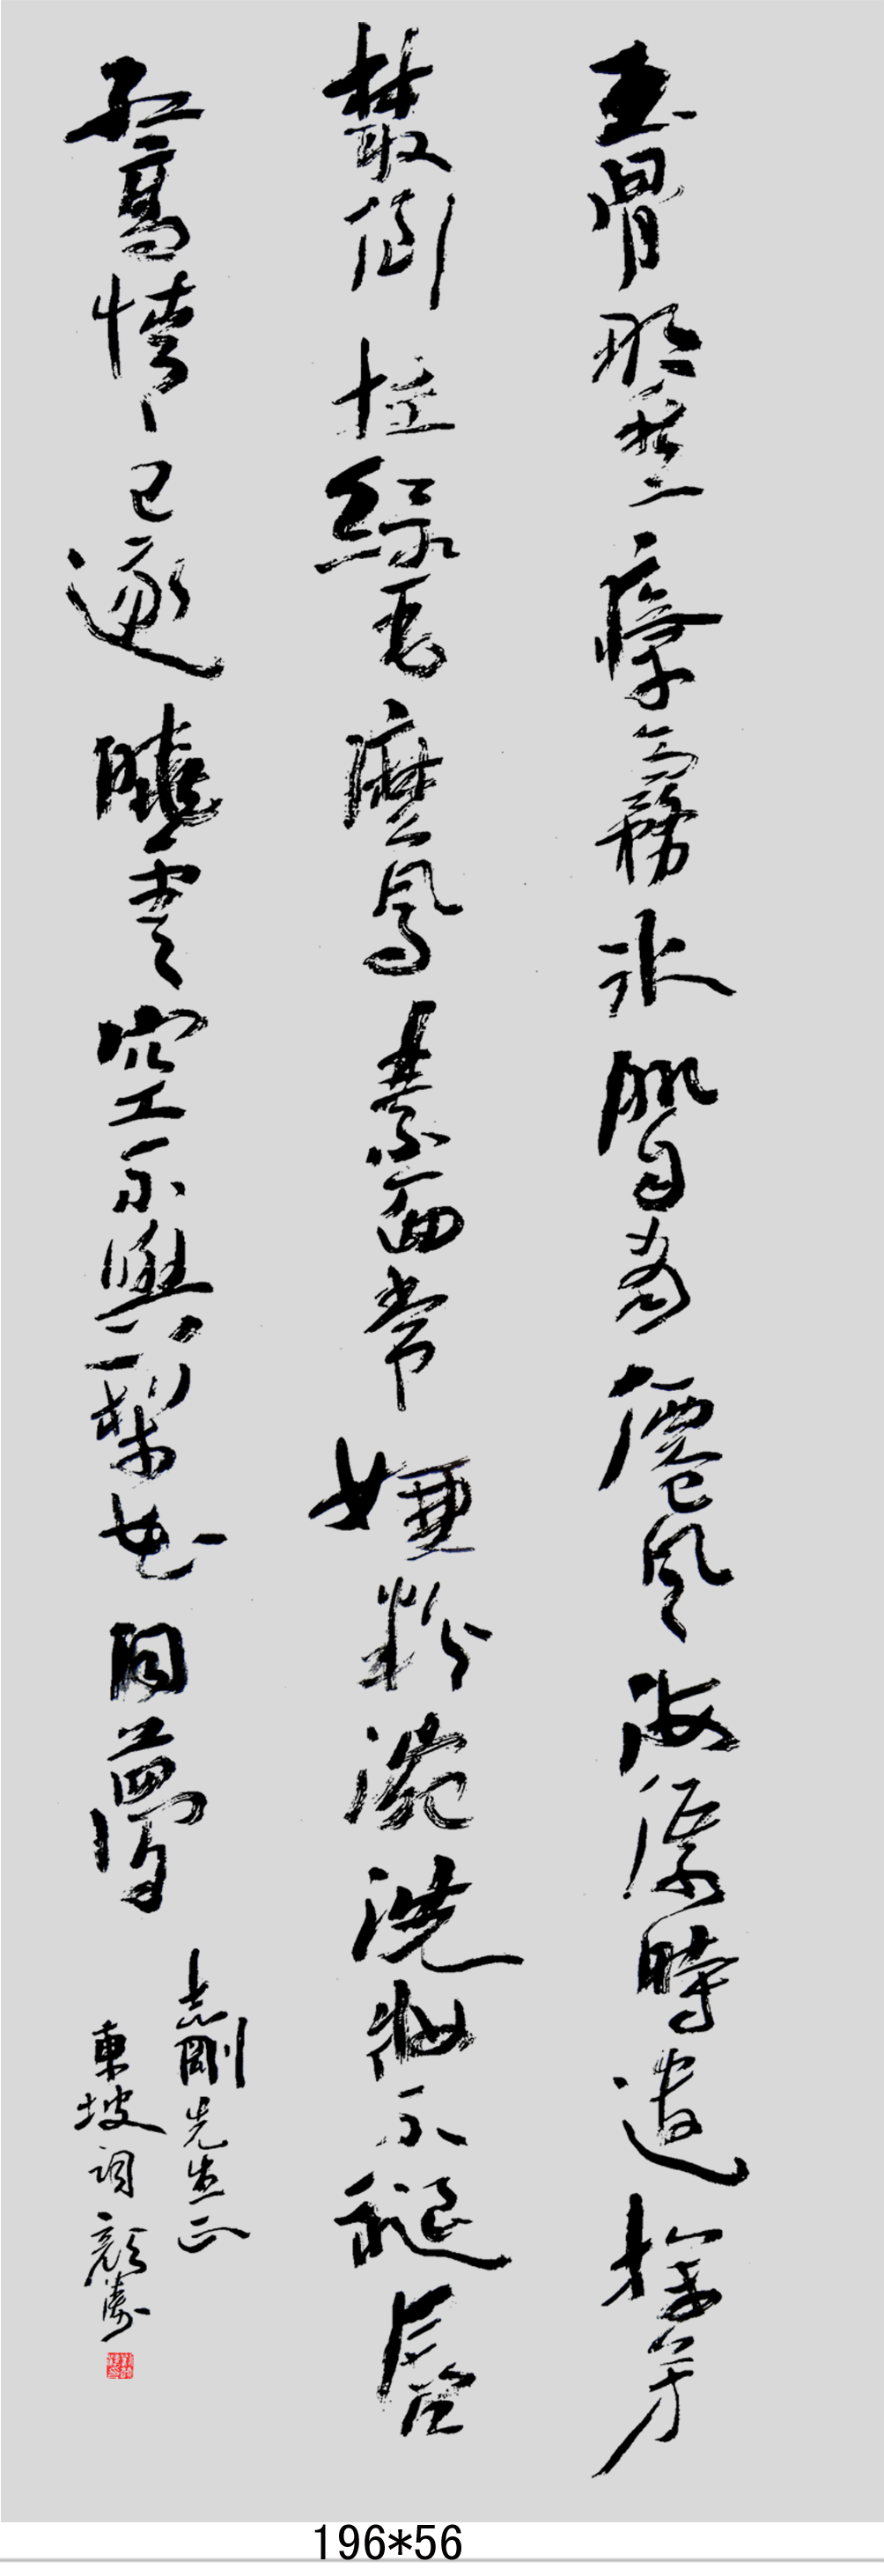 玉骨那愁瘴霧冰肌自有僊風海僊時遣探芳
叢倒挂綠毛麽鳳素面常嫌粉涴洗妝不褪唇
紅高情已逐曉雲空不與梨花同夢
志剛先生正
東坡詞
196*56